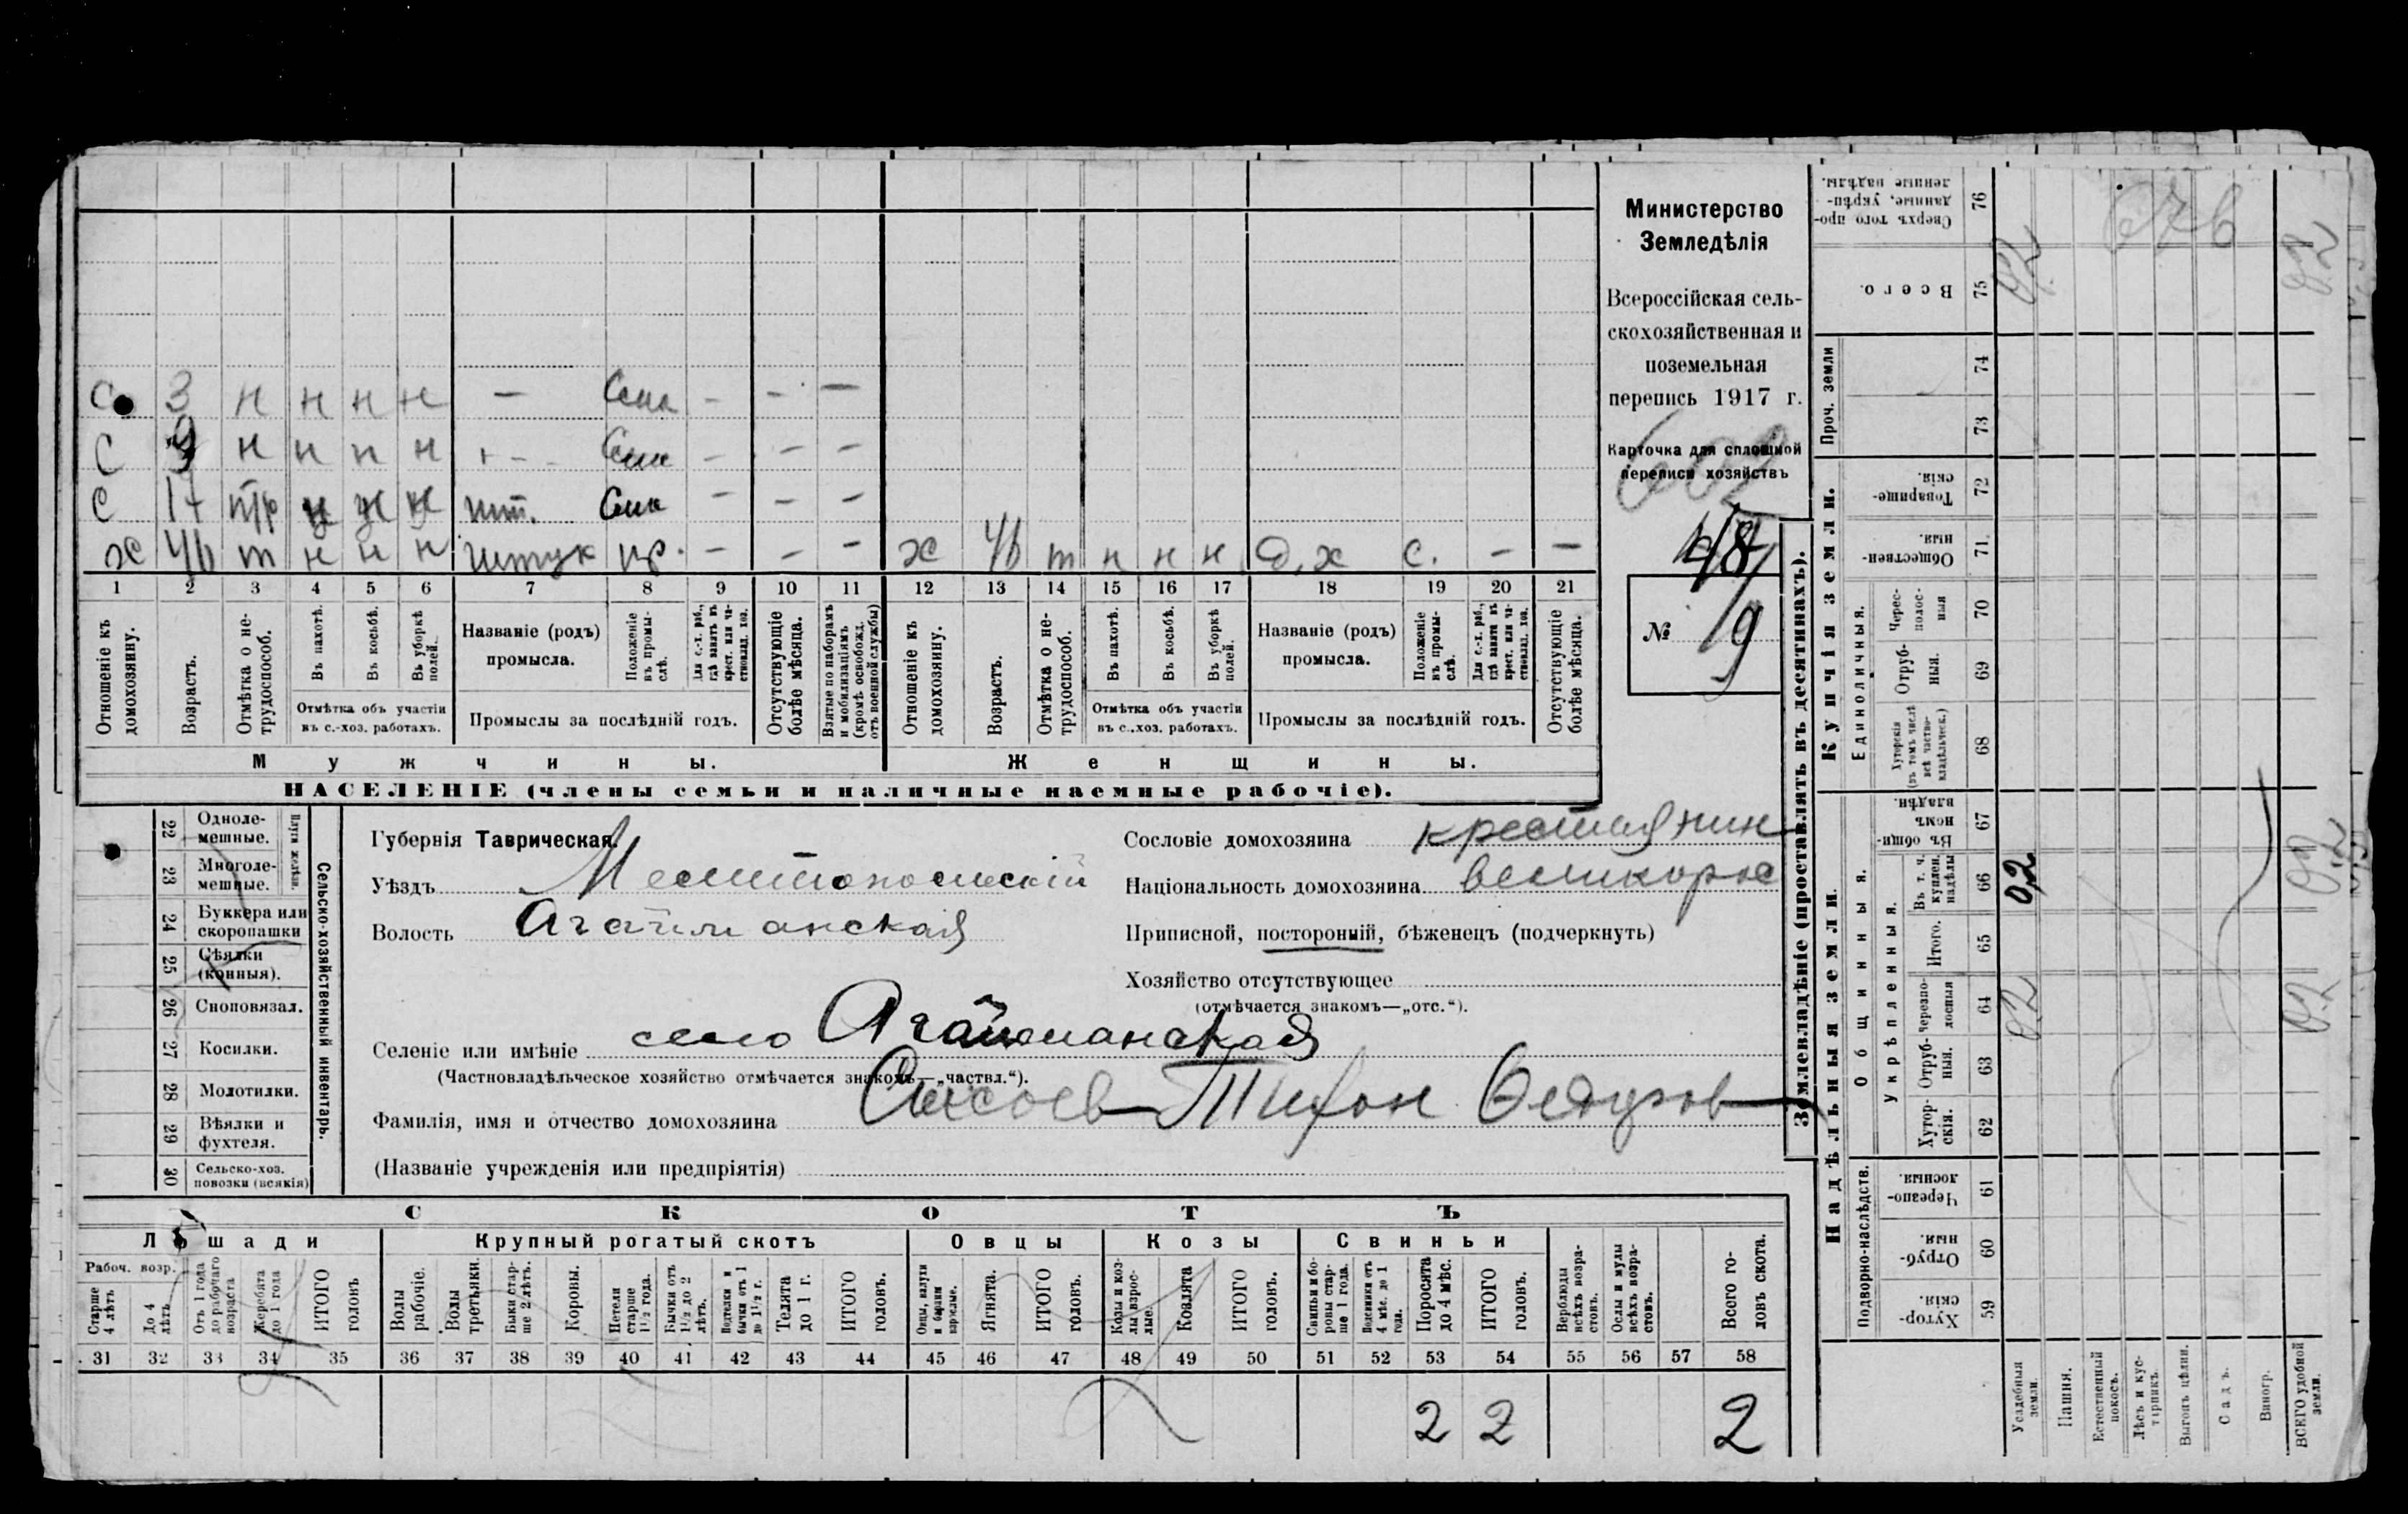 Министерство
Земледѣлія
Всероссійская сель-
скохозяйственная и
поземельная
перепись 1917 г.
Карточка для сплошной
переписи хозяйствъ
602
48
№ 19
С 3 н н н н — Сын — — —
С 9 н н н н — Сын — — —
С 17 п/р н н н шт. Сын — — —
х 46 т н н н штук пр. — — — х 46 т н н н д.х с. — —
1 2 3 4 5 6 7 8 9 10 11 12 13 14 15 16 17 18 19 20 21
Отношеніе къ домохозяину.
Возрастъ.
Отмѣтка о не-трудоспособ.
Въ пахотѣ.
Въ косьбѣ.
Въ уборкѣ полей.
Отмѣтка объ участіи въ с.-хоз. работахъ.
Названіе (родъ) промысла.
Положеніе въ промы-слѣ.
Для с.-х. раб., гдѣ занятъ въ крест. или ча-стновлад. хоз.
Промыслы за послѣдній годъ.
Отсутствующіе болѣе мѣсяца.
Взятые по наборамъ и мобилизаціямъ (кромѣ освобожд. отъ военной службы)
Отношеніе къ домохозяину.
Возрастъ.
Отмѣтка о не-трудоспособ.
Въ пахотѣ.
Въ косьбѣ.
Въ уборкѣ полей.
Отмѣтка объ участіи въ с.-хоз. работахъ.
Названіе (родъ) промысла.
Положеніе въ промы-слѣ.
Для с.-х. раб., гдѣ занята въ крест. или ча-стновлад. хоз.
Промыслы за послѣдній годъ.
Отсутствующіе болѣе мѣсяца.
Мужчины. Женщины.
НАСЕЛЕНІЕ (члены семьи и наличные наемные рабочіе).
22 Одноле-мешные.
23 Многоле-мешные.
Плуги желѣзн.
24 Буккера или скоропашки
25 Сѣялки (конныя).
26 Сноповязал.
27 Косилки.
28 Молотилки.
29 Вѣялки и фухтеля.
30 Сельско-хоз. повозки (всякія)
Сельско-хозяйственный инвентарь.
Губернія Таврическая.
Уѣздъ Мелитопольскій
Волость Агайманская
Сословіе домохозяина крестьянин
Національность домохозяина великорос
Приписной, посторонній, бѣженецъ (подчеркнуть)
Хозяйство отсутствующее
(отмѣчается знакомъ—„отс.“).
Селеніе или имѣніе село Агайманская
(Частновладѣльческое хозяйство отмѣчается знакомъ—„частвл.“).
Фамилія, имя и отчество домохозяина Тихон Федоров
(Названіе учрежденія или предпріятія)
СКОТЪ
Лошади Крупный рогатый скотъ Овцы Козы Свиньи
Рабоч. возр.
Старше 4 лѣтъ
До 4 лѣтъ
Отъ 1 года до рабочаго возраста
Жеребята до 1 года
ИТОГО головъ
Волы рабочіе.
Волы третьяки.
Быки стар-ше 2 лѣтъ.
Коровы.
Нетели старше 1½ года.
Бычки отъ 1½ до 2 лѣтъ.
Подтелки и бычки отъ 1 до 1½ г.
Телята до 1 г.
ИТОГО головъ.
Овцы, валухи и бараны взрослые.
Ягнята.
ИТОГО головъ.
Козы и коз-лы взрос-лые.
Козлята
ИТОГО головъ.
Свиньи и бо-ровы стар-ше 1 года.
Подсвинки отъ 4 мѣс. до 1 года.
Поросята до 4 мѣс.
ИТОГО головъ.
Верблюды всѣхъ возра-стовъ.
Ослы и мулы всѣхъ возра-стовъ.
Всего го-ловъ скота.
31 32 33 34 35 36 37 38 39 40 41 42 43 44 45 46 47 48 49 50 51 52 53 54 55 56 57 58
2 2 2
Землевладѣніе (проставлять въ десятинахъ).
Надѣльныя земли. Купчія земли. Проч. земли
Подворно-наслѣдств.
Общинныя.
Укрѣпленныя.
Единоличныя.
Хутор-скія. 59
Отруб-ныя. 60
Черезпо-лосныя. 61
Хутор-скія. 62
Отруб-ныя. 63
Черезпо-лосныя 64
Итого. 65
Въ т. ч. куплен. надѣлы 66
Въ общин-номъ владѣн. 67
Хуторскія (въ томъ числѣ всѣ частно-владѣльческ.) 68
Отруб-ныя. 69
Черес-полос-ныя 70
Обществен-ныя. 71
Товарище-скія. 72
73
74
Всего. 75
Сверхъ того про-данные, укрѣп-ленные надѣлы. 76
Усадебныя земли.
Пашня.
Естественный покосъ.
Лѣсъ и кус-тарникъ.
Выгонъ цѣлин.
Садъ.
Виногр.
ВСЕГО удобной земли.
0,2 0,2 0,2
676
0,2 0,2 0,2